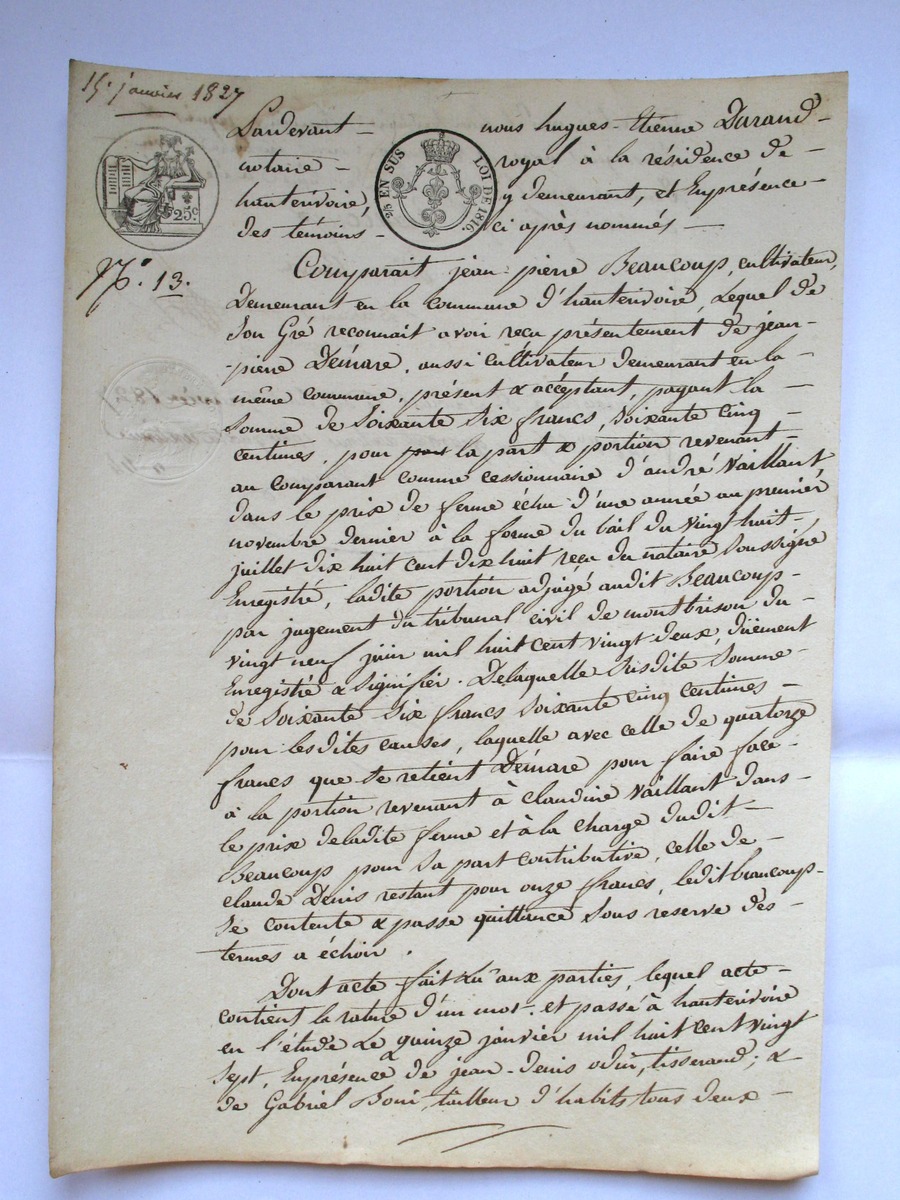 15. janvier 1827
Pardevant — nous hugues-Etienne Durand-
notaire — royal à la résidence de —
hauterivoire, y demeurant, et Enprésence-
des témoins - ci après nommés —
25c
2/5 EN SUS LOI DE 1816.
N.° 13.
Comparait jean-pierre Beaucoup, cultivateur,
Demeurant en la commune d'hauterivoire, Lequel de
Son Gré reconnait avoir reçu présentement de jean-
pierre Demare, aussi cultivateur demeurant en la-
même commune, présent & acceptant, payant la —
Somme de Soixante Six francs, Soixante Cinq
centimes, pour la part & portion revenant-
au comparant comme cessionnaire d'andré Vaillant
dans le prix de ferme échu d'une année au premier
novembre dernier à la forme du bail du Vingt huit-
juillet dix huit cent dix huit reçu du notaire Soussigné
Enregistré, ladite portion adjugé audit Beaucoup-
par jugement du tribunal civil de montbrison du-
vingt neuf juin mil huit cent vingt deux, dûement
Enregistré & Signifier. Delaquelle Susdite Somme-
de Soixante Six francs Soixante cinq centimes-
pour lesdites causes, laquelle avec celle de quatorze
francs que Se retient Demare pour faire face-
à la portion revenant à Claudine Vaillant dans-
le prix deladite ferme et à la charge dudit —
Beaucoup pour Sa part contributive, celle de-
claude Denis restant pour onze francs, ledit beaucoup-
Se contente & passe quittance Sous reserve des-
termes a échoir.
Dont acte fait Lu aux parties, lequel acte-
contient la rature d'un mot. et passé à hauterivoire
en l'étude Le quinze janvier mil huit cent vingt
Sept, Enprésence de jean-Denis odin, tisserand, &
de Gabriel tailleur d'habits tous deux —